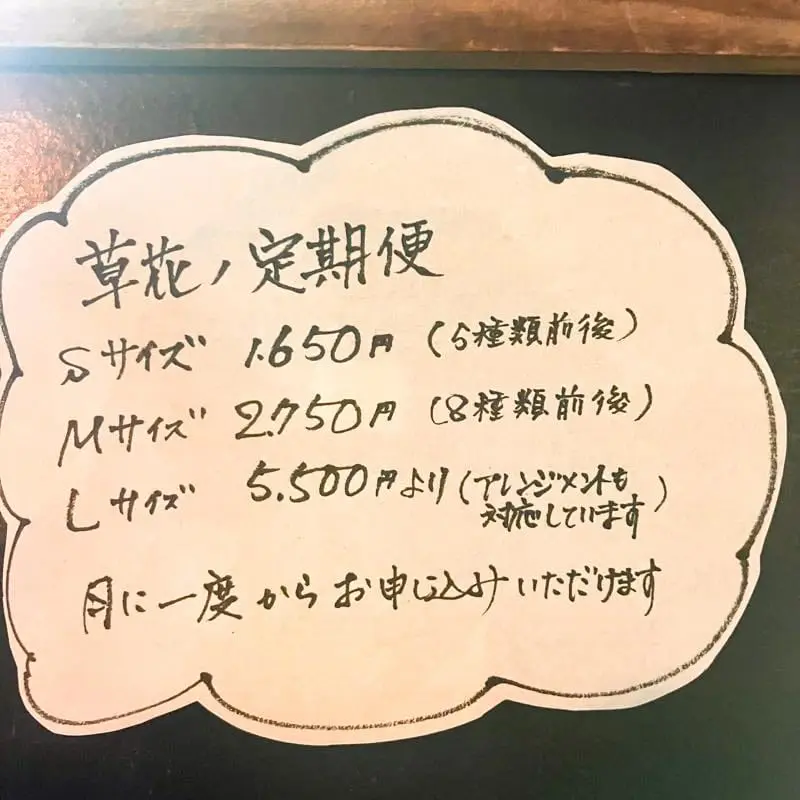 草花ノ定期便
Sサイズ 1.650円 (5種類前後)
Mサイズ 2.750円 (8種類前後)
Lサイズ 5.500円より (アレンジメントも
対応しています)
月に一度からお申し込みいただけます